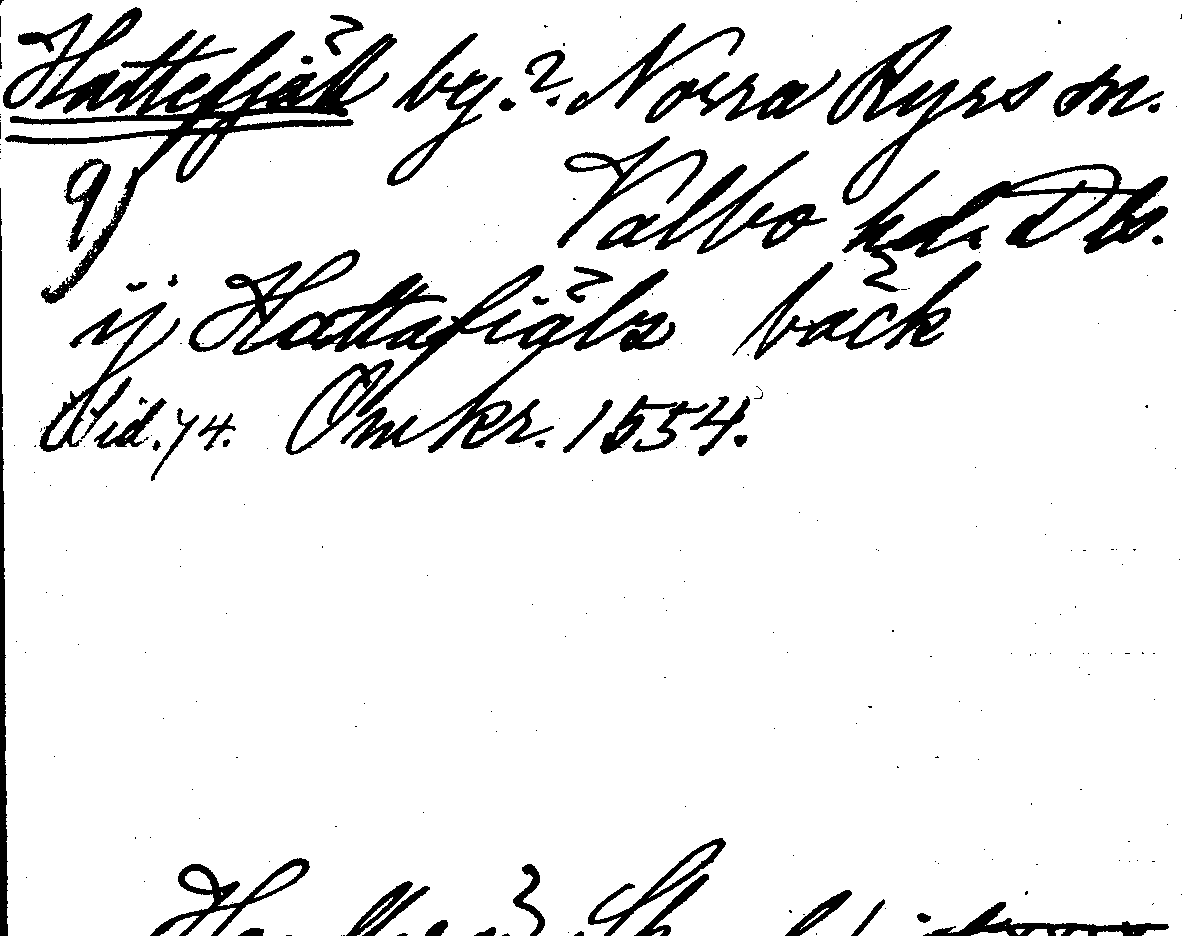 Hattefjäll by.? Norra Ryrs sn.
9) Valbo hd. Dls.
ij Hattafiäls bäck
Wid. 74. Omkr. 1554.